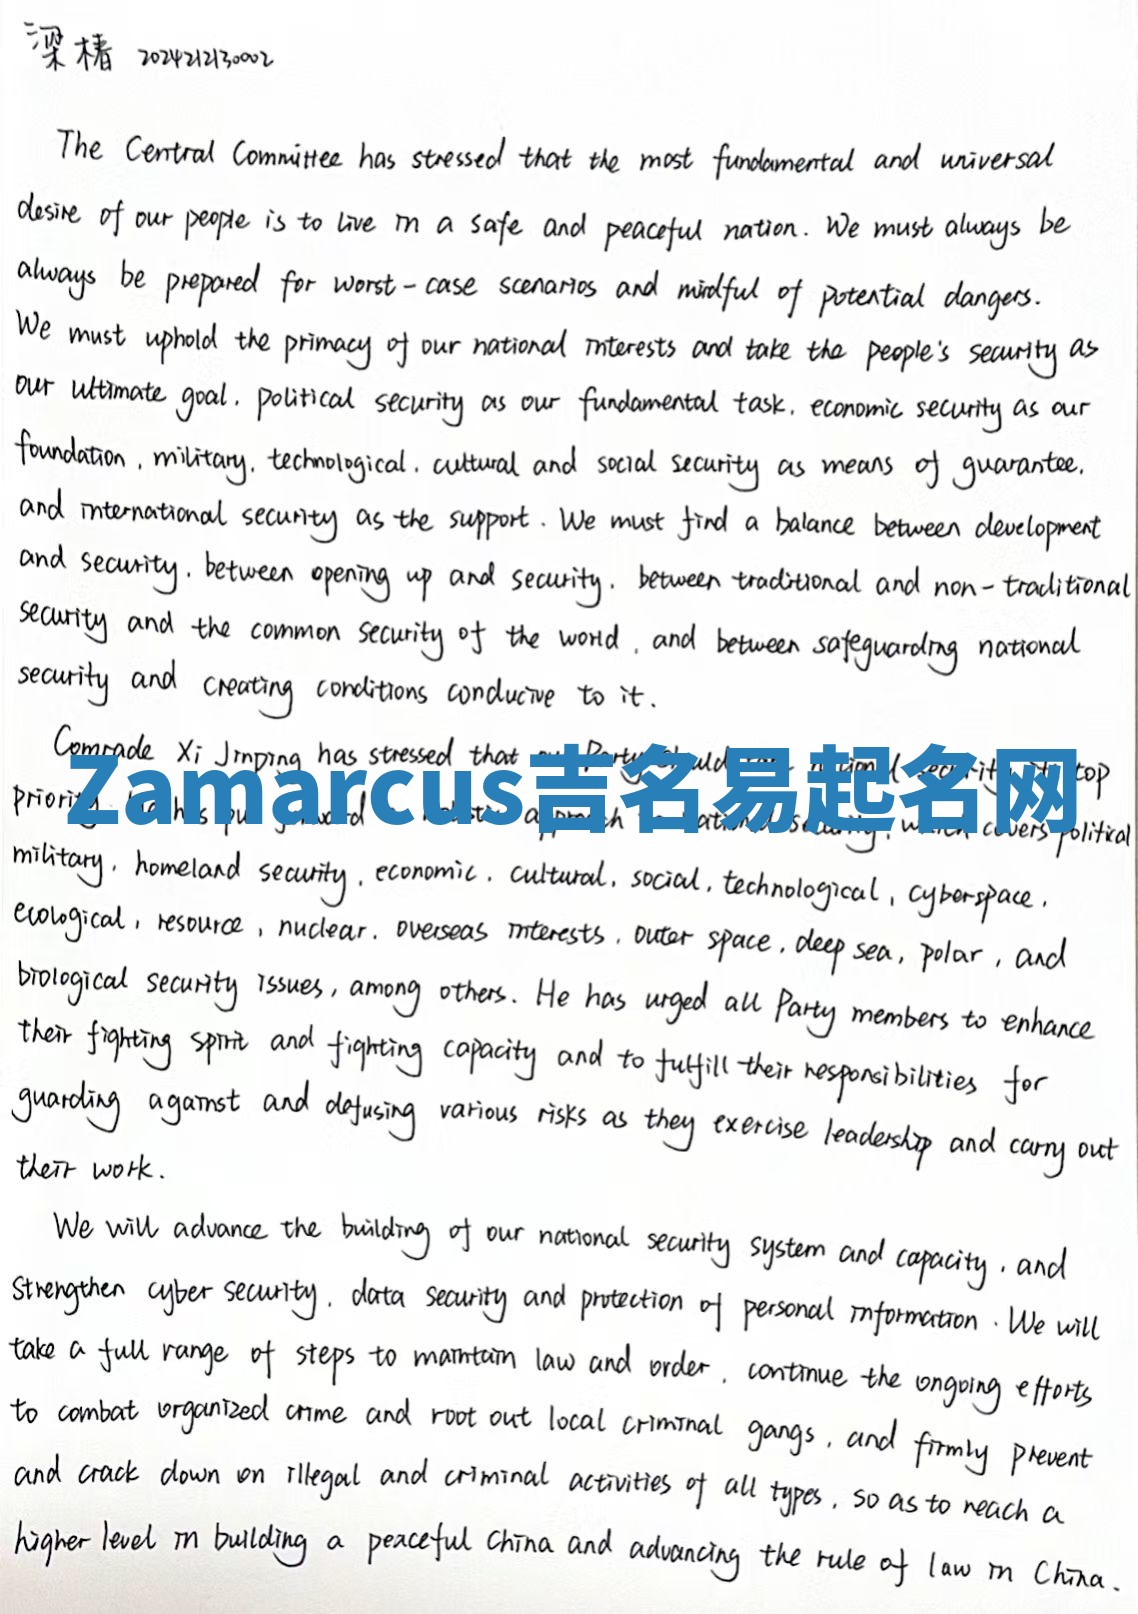 梁椿 2024212130002
The Central Committee has stressed that the most fundamental and universal
desire of our people is to live in a safe and peaceful nation. We must always be
always be prepared for worst-case scenarios and mindful of potential dangers.
We must uphold the primacy of our national interests and take the people's security as
our ultimate goal, political security as our fundamental task, economic security as our
foundation, military, technological, cultural and social security as means of guarantee,
and international security as the support. We must find a balance between development
and security, between opening up and security, between traditional and non-traditional
security and the common security of the world, and between safeguarding national
security and creating conditions conducive to it.
Comrade Xi Jinping has stressed that Party national security top
Zamarcus吉名易起名网
priority has approach national security, which covers political
military, homeland security, economic, cultural, social, technological, cyberspace,
ecological, resource, nuclear, overseas interests, outer space, deep sea, polar, and
biological security issues, among others. He has urged all Party members to enhance
their fighting spirit and fighting capacity and to fulfill their responsibilities for
guarding against and defusing various risks as they exercise leadership and carry out
their work.
We will advance the building of our national security system and capacity, and
strengthen cyber security, data security and protection of personal information. We will
take a full range of steps to maintain law and order, continue the ongoing efforts
to combat organized crime and root out local criminal gangs, and firmly prevent
and crack down on illegal and criminal activities of all types, so as to reach a
higher level in building a peaceful China and advancing the rule of law in China.